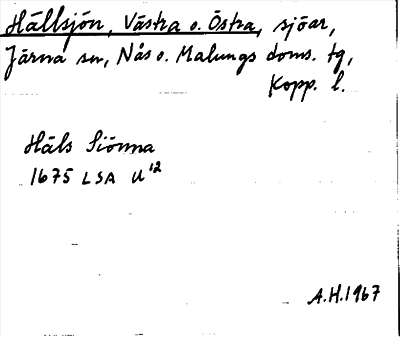 Hällsjön, Västra o. Östra, sjöar,
Järna sn, Nås o. Malungs doms. tg,
Kopp. l.
Häls Siönna
1675 LSA U¹²
A.H. 1967